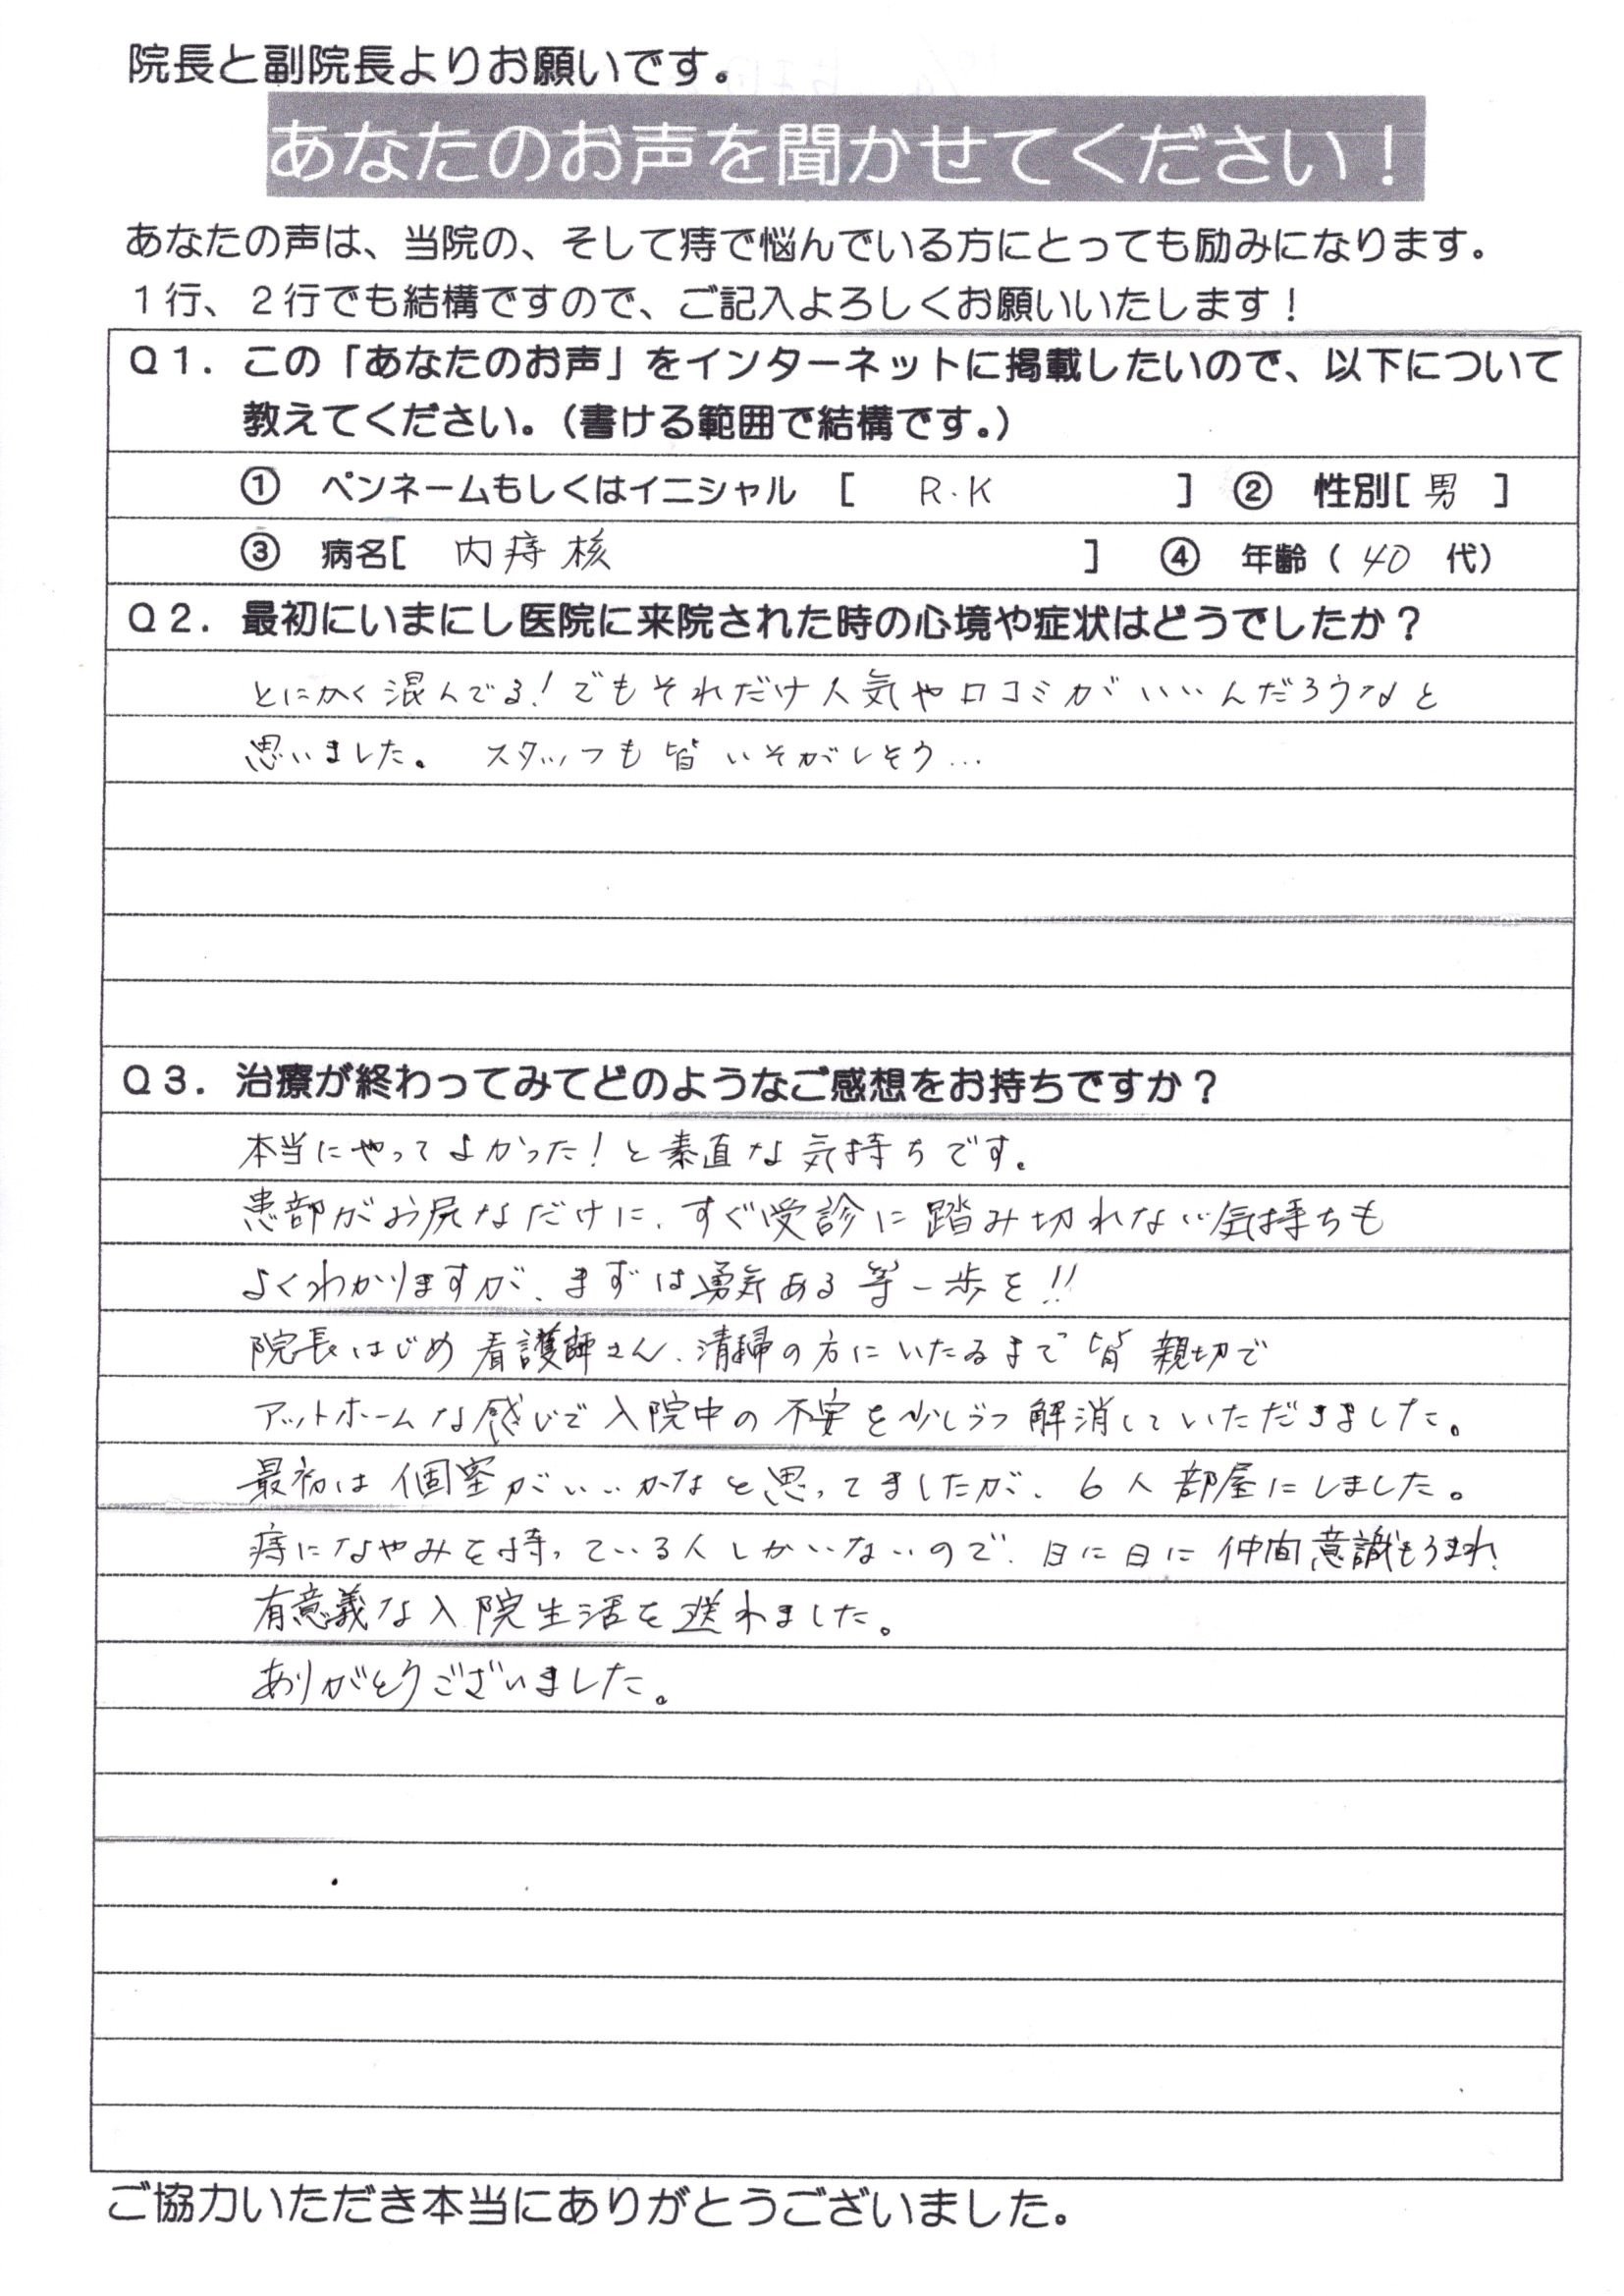 院長と副院長よりお願いです。
あなたのお声を聞かせてください！
あなたの声は、当院の、そして痔で悩んでいる方にとっても励みになります。
１行、２行でも結構ですので、ご記入よろしくお願いいたします！
Ｑ１．この「あなたのお声」をインターネットに掲載したいので、以下について
教えてください。（書ける範囲で結構です。）
① ペンネームもしくはイニシャル ［ R.K ］ ② 性別［ 男 ］
③ 病名［ 内痔核 ］ ④ 年齢（ 40 代）
Ｑ２．最初にいまにし医院に来院された時の心境や症状はどうでしたか？
とにかく混んでる！でもそれだけ人気や口コミがいいんだろうなと
思いました。 スタッフも皆いそがしそう…
Ｑ３．治療が終わってみてどのようなご感想をお持ちですか？
本当にやってよかった！と素直な気持ちです。
患部がお尻なだけに、すぐ受診に踏み切れない気持ちも
よくわかりますが、まずは勇気ある第一歩を!!
院長はじめ看護師さん、清掃の方にいたるまで皆親切で
アットホームな感じで入院中の不安を少しづつ解消していただきました。
最初は個室がいいかなと思ってましたが、6人部屋にしました。
痔になやみを持っている人しかいないので、日に日に仲間意識もうまれ、
有意義な入院生活を送れました。
ありがとうございました。
ご協力いただき本当にありがとうございました。